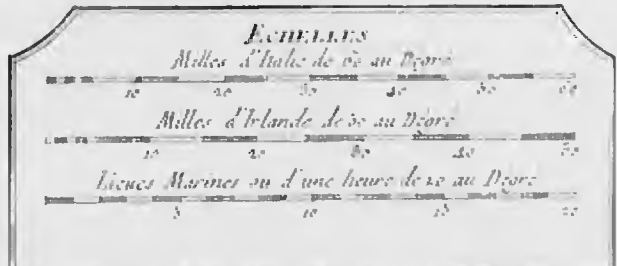 ECHELLES
Milles d'Italie de 60 au Degré
10 20 30 40 50 60
Milles d'Irlande de 50 au Degré
10 20 30 40 50
Lieues Marines ou d'une heure de 20 au Degré
5 10 15 20